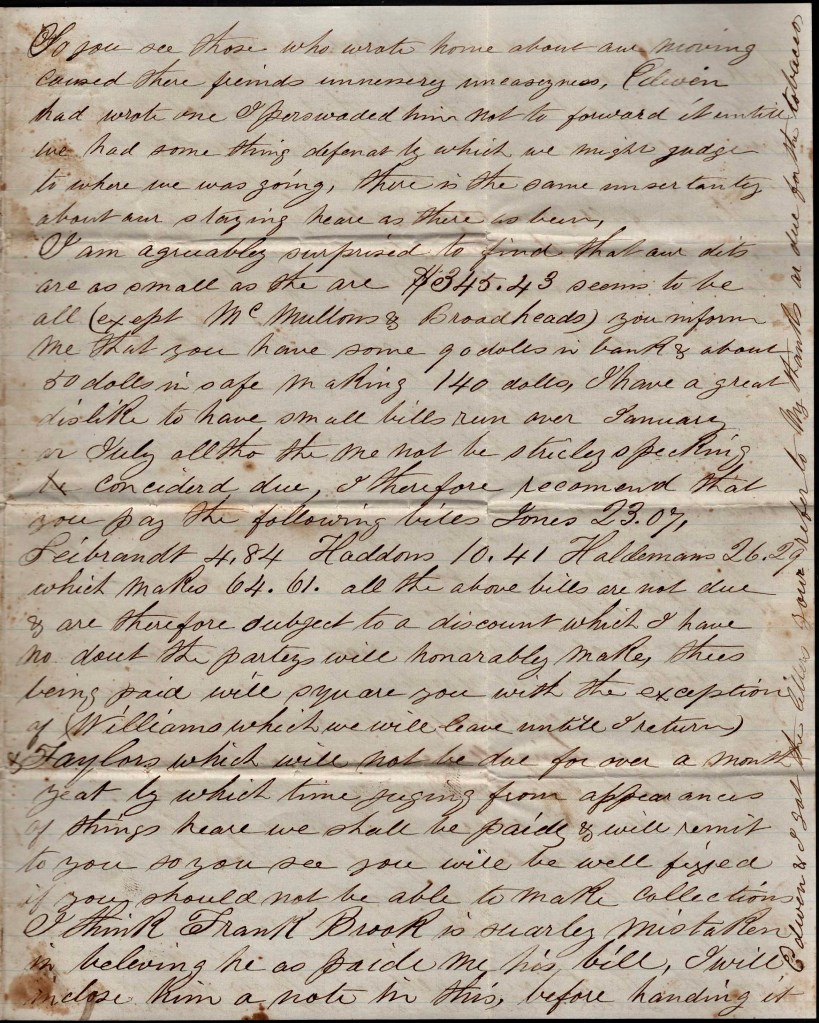 So you see those who wrote home about our moving
caused there freinds unnessery uneasyness, Edwin
had wrote one I perswaded him not to forward it untill
we had some thing defenat by which we might judge
to where we was going, there is the same unsertanty
about our staying heare as there as been,
I am agreuably surprised to find that our dets
are as small as the are $345.43 seems to be
all (exept Mc Mullons & Broadheads) you inform
me that you have some 90 dolls in bank & about
50 dolls in safe making 140 dolls, I have a great
dislike to have small bills run over January
or July alltho the me not be stricley specking
be conciderd due, I therefore recomend that
you pay the following bills Jones 23.07,
Leibrandt 4.84 Haddons 10.41 Haldemans 26.29
which makes 64.61. all the above bills are not due
& are therefore subject to a discount which I have
no dout the parteys will honarabley make, thees
being paid will square you with the exception
of (Williams which we will leave untill I return)
& Taylors which will not be due for over a month
yeat by which time juging from appearances
of things heare we shall be paide & will remit
to you so you see you will be well fixed
if you should not be able to make collections
I think Frank Brook is suarley mistaken
in beleving he as paide me his bill, I will
inclose him a note in this, before handing it
Edwin & I got the letters your refer to My thanks ar due for the tobacco